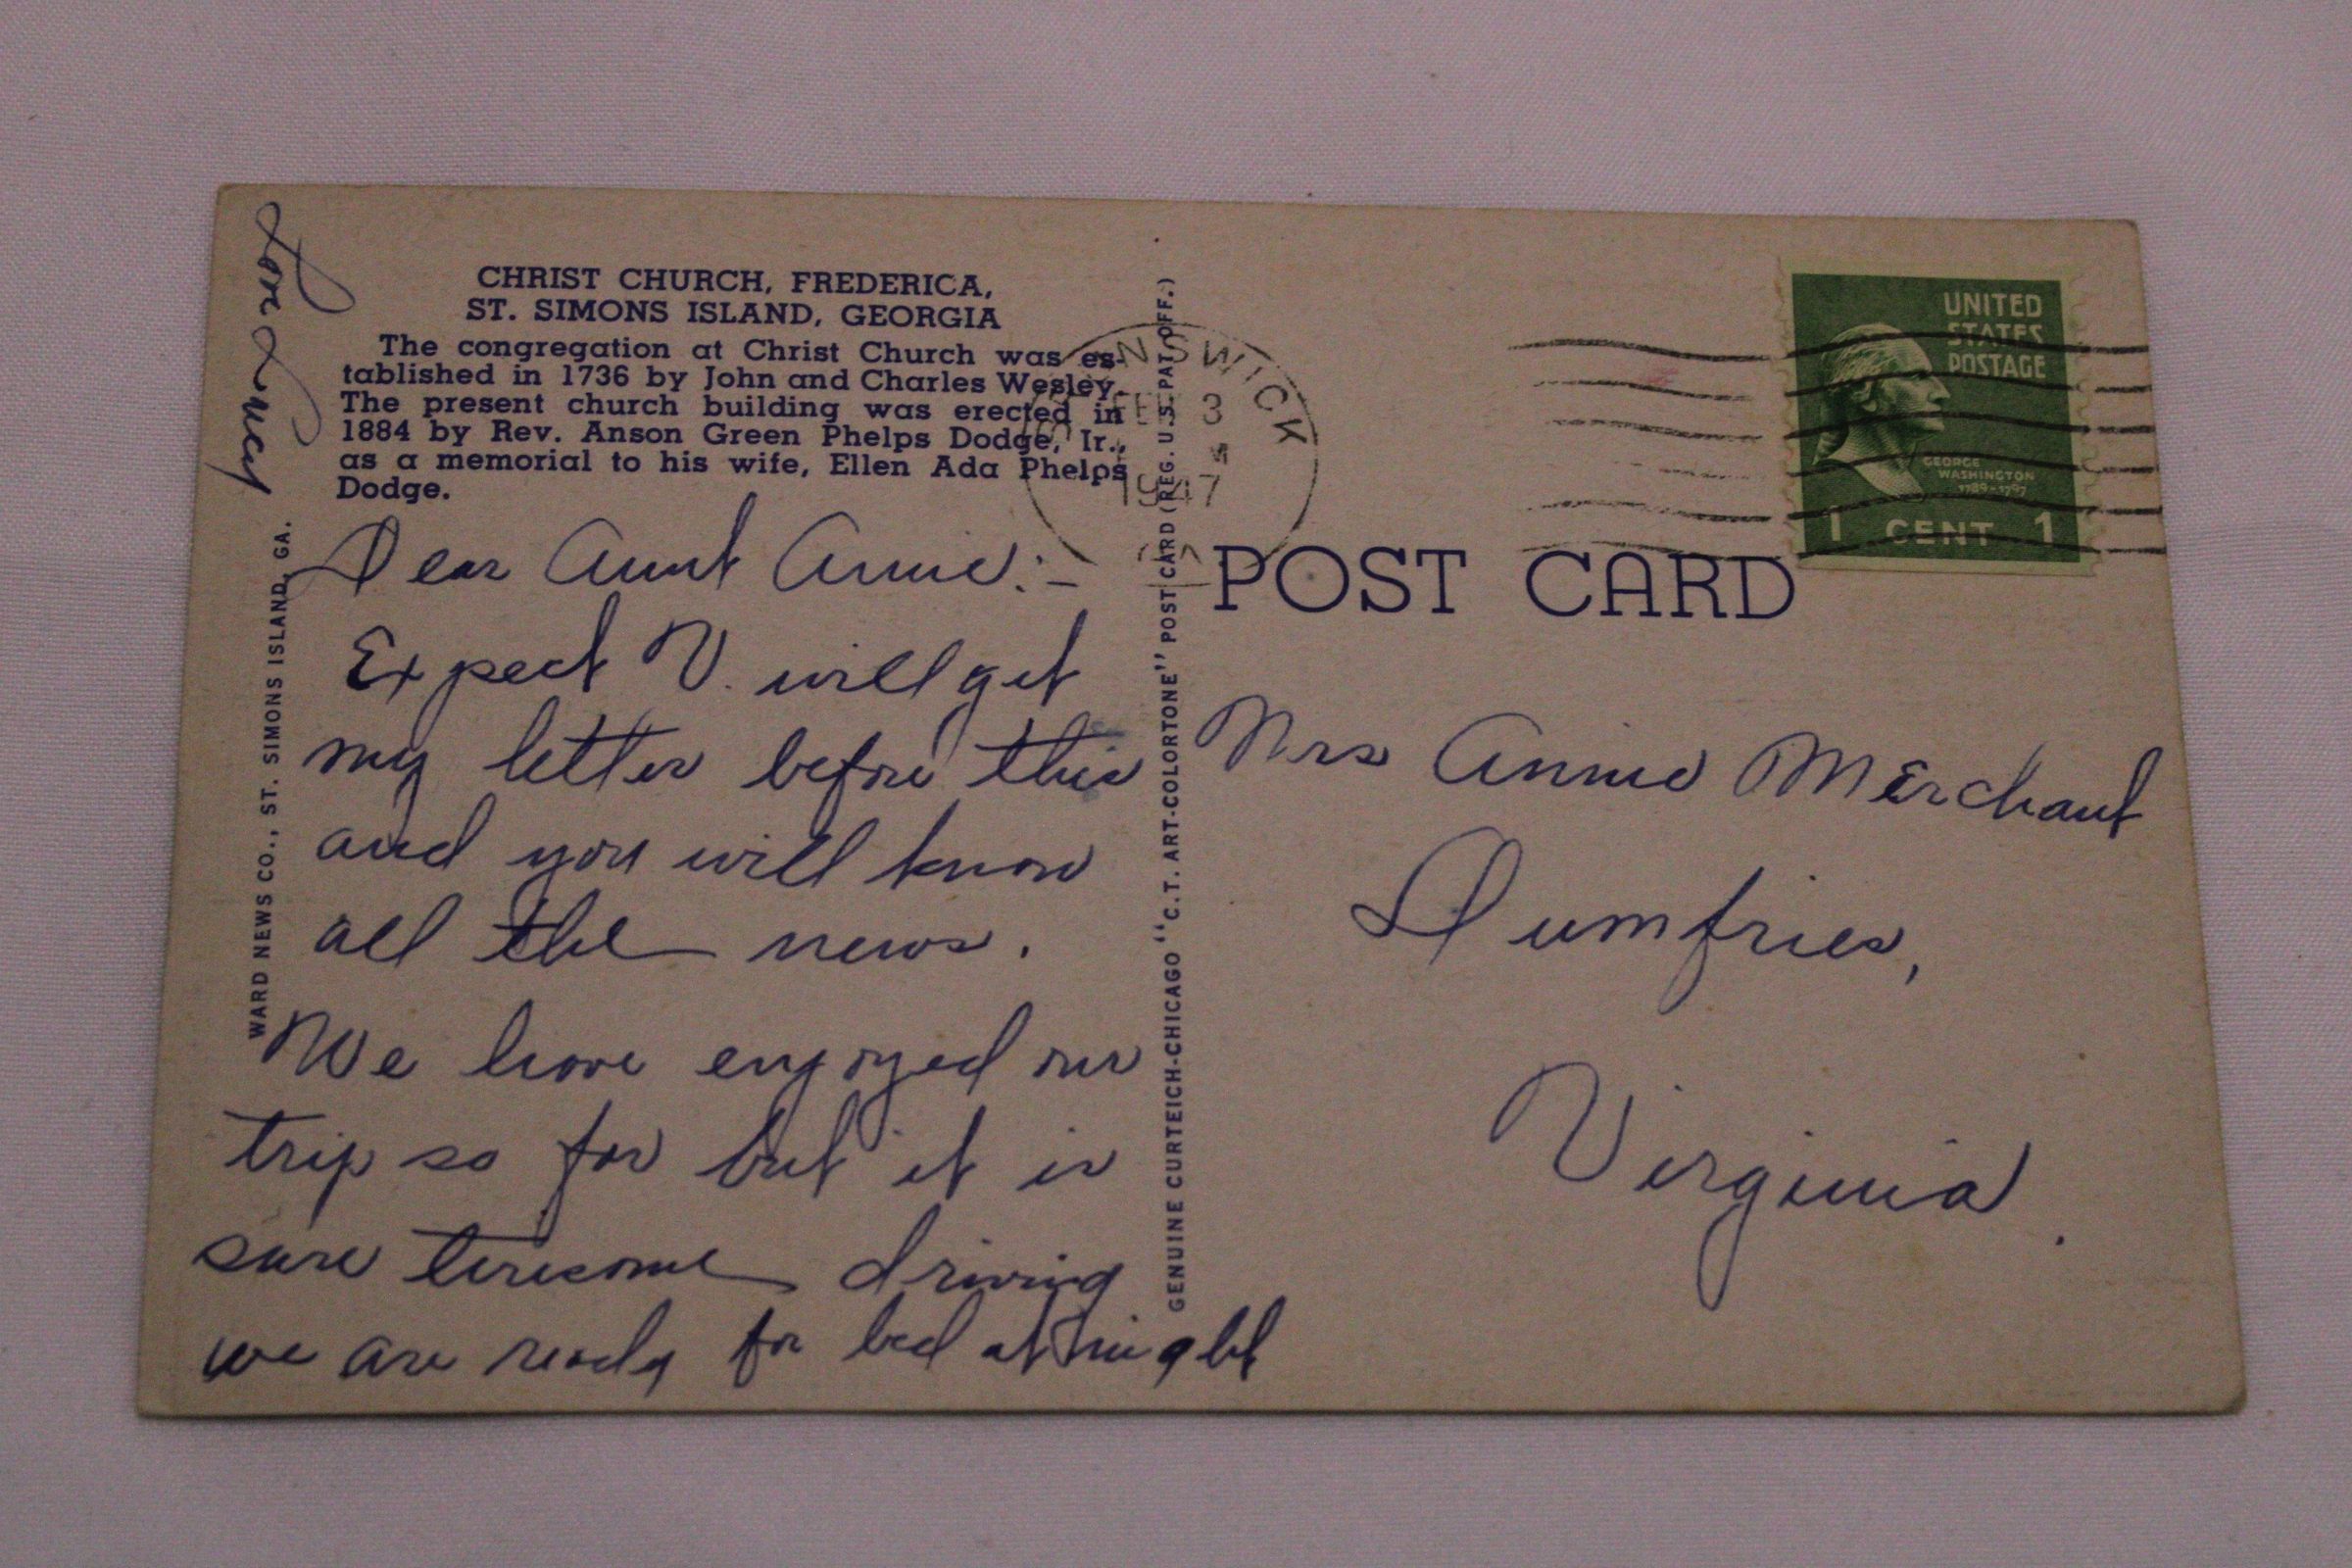 CHRIST CHURCH, FREDERICA,
ST. SIMONS ISLAND, GEORGIA
The congregation at Christ Church was es-
tablished in 1736 by John and Charles Wesley.
The present church building was erected in
1884 by Rev. Anson Green Phelps Dodge, Jr.,
as a memorial to his wife, Ellen Ada Phelps
Dodge.
Dear Aunt Annie:-
Expect V. will get
my letter before this
and you will know
all the news.
We have enjoyed our
trip so far but it is
sure tiresome driving
we are ready for bed at night
Love Lucy
WARD NEWS CO., ST. SIMONS ISLAND, GA.
GENUINE CURTEICH-CHICAGO "C.T. ART-COLORTONE" POST CARD (REG. U.S. PAT. OFF.)
NSWICK
FEB 3
M
1947
GA
UNITED
STATES
POSTAGE
GEORGE
WASHINGTON
1789-1797
1 CENT 1
POST CARD
Mrs Annie Merchant
Dumfries,
Virginia.